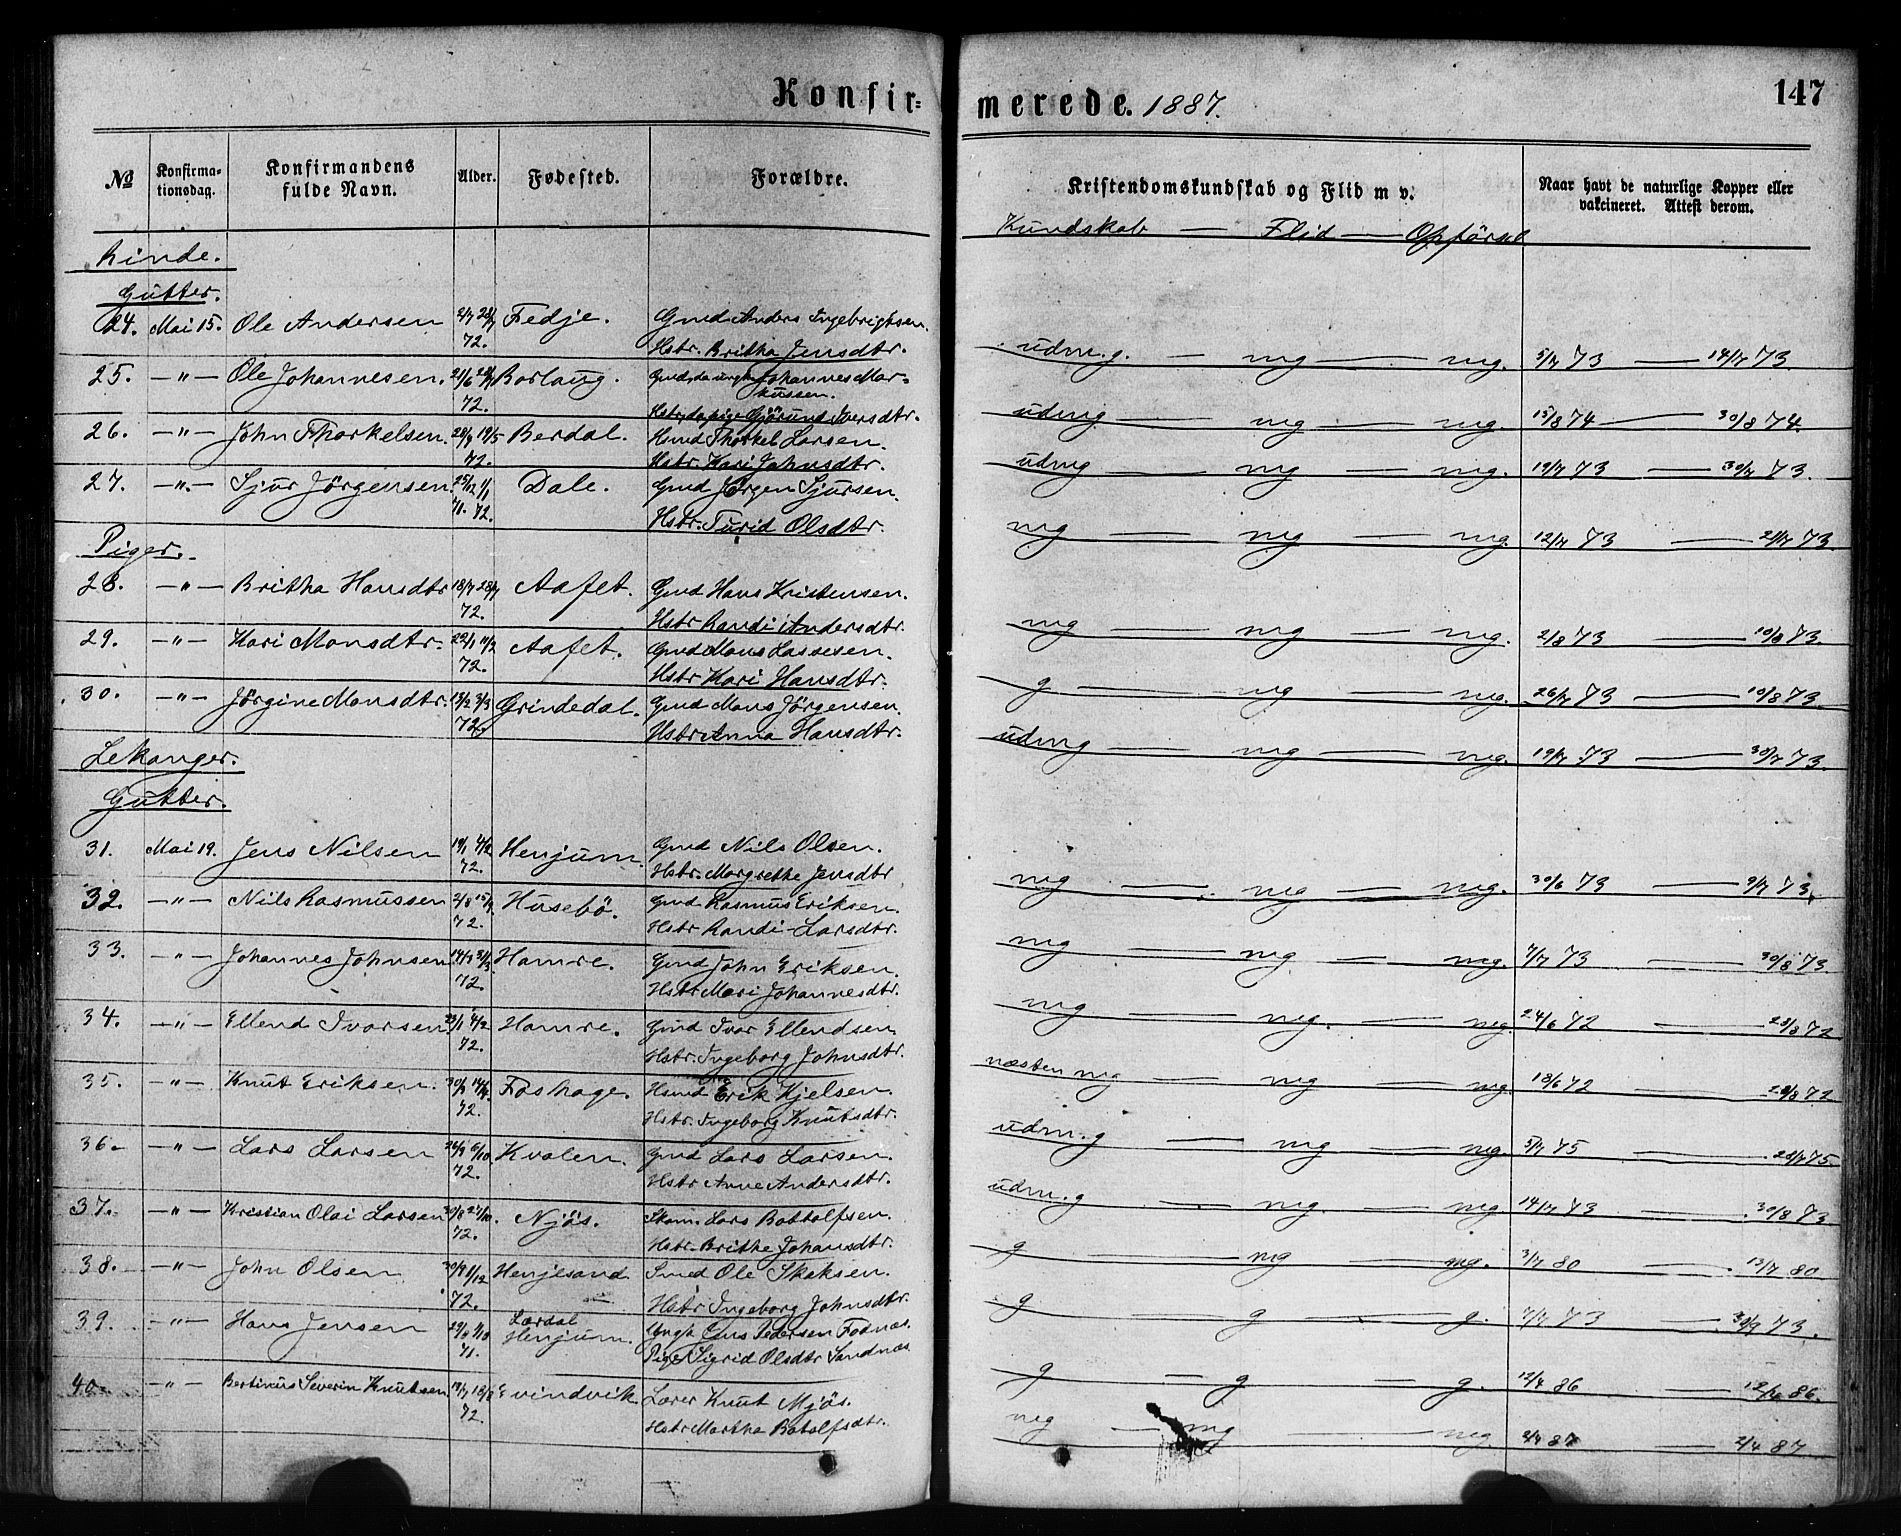 Konfir-
merede. 1887.
147
No
Konfirma-
tionsdag.
Konfirmandens
fulde Navn.
Alder.
Fødested.
Forældre.
Kristendomskundskab og Flid m v.
Naar havt de naturlige Kopper eller
vakcineret. Attest derom.
Kundskab — Flid — Opförsel
Rinde.
Gutter.
24. Mai 15. Ole Andersen 72. Fedje. Gmd Anders Ingebrigtsen.
Hstr. Britha Jensdtr.
udm. g. — mg — mg. 5/7 73 — 14/7 73.
25. —"— Ole Johannesen. 72. Borlaug. Johannes Mar-
kussen.
Gjörund Iversdtr.
udmg — mg — mg. 15/8 74 — 30/8 74.
26. —"— John Thorkelsen. 28/4 19/5 72. Berdal. Hsmd Thorkel Larsen.
Hstr. Kari Johnsdtr.
udmg — mg — mg. 19/7 73 — 30/7 73.
27. —"— Sjur Jörgensen. 25/12 71. 1/1 72. Dale. Gmd Jörgen Sjursen.
Hstr. Turid Olsdtr.
mg — mg — mg. 12/7 73 — 21/7 73.
Piger.
28. —"— Britha Hansdtr 18/7 28/7 72. Aafet. Gmd Hans Kristensen.
Hstr Randi Andersdtr.
mg — mg — mg. 2/8 73 — 10/8 73.
29. —"— Kari Monsdtr. 22/1 11/2 72. Aafet. Gmd Mons Lassesen.
Hstr Kari Hansdtr.
g — mg. 26/7 73 — 10/8 73.
30. —"— Jörgine Monsdtr. 13/2 3/3 72. Grindedal. Gmd Mons Jörgensen.
Hstr Anna Hansdtr.
udmg — mg — mg. 19/7 73 — 30/7 73.
Lekanger.
Gutter.
31. Mai 19. Jens Nilsen 19/1 4/2 72. Henjum. Gmd Nils Olsen.
Hstr. Margrethe Jensdtr
mg — mg — mg. 30/6 73 — 9/7 73.
32. —"— Nils Rasmussen 72. Husebö. Gmd Rasmus Eriksen.
Hstr Randi Larsdtr.
mg — mg — mg. 7/7 73 — 30/8 73
33. —"— Johannes Johnsen 14/3 31/3 72. Hamre. Gmd John Eriksen.
Hstr Mari Johannesdtr.
mg — mg. — mg. 24/6 72 — 28/8 72
34. —"— Ellend Ivarsen 23/1 4/2 72. Hamre. Gmd Ivar Ellendsen
Hstr. Ingeborg Johnsdtr.
næsten mg — mg — mg. 18/6 72 — 28/8 72
35. —"— Knut Eriksen. 72. Foshage. Hsmd Erik Kjelsen.
Hstr. Ingeborg Knutsdtr.
udm. g — mg — mg. 5/7 75 — 28/7 75.
36. —"— Lars Larsen 24/9 6/10 72. Kvalen. Gmd Lars Larsen.
Hstr Anne Andersdtr.
udm. g — mg. — mg. 14/7 73 — 30/8 73
37. —"— Kristian Olai Larsen 30/8 27/10 72. Njös. Skom. Lars Bottolfsen.
Hstr. Brithe Johansdtr.
g — mg — mg. 3/7 80 — 13/7 80
38. —"— John Olsen 72. Henjesand Smed Ole Skaksen.
Hstr Ingeborg Johnsdtr.
g — g — g. 7/7 73 — 30/9 73.
39. —"— Hans Jensen 71. Lærdal
Henjum. Ungk. Jens Pedersen Fodnæs.
Pige Sigrid Olsdtr Sandnæs
g — g — g. 12/4 86 — 12/4 86.
40. —"— Bertinus Severin Knutsen 72. Evindvik Lærer Knut Mjös.
Hstr Martha Botolfsdtr.
mg — mg — mg. 2/4 87 — 2/4 87